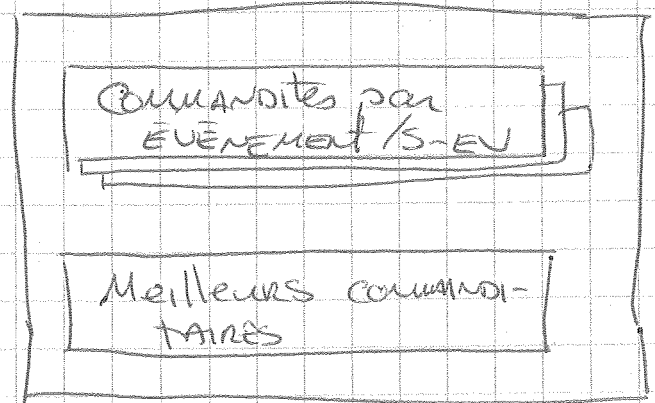 COMMANDITES par
ÉVÉNEMENT /S-EV
Meilleurs COMMANDI-
TAIRES